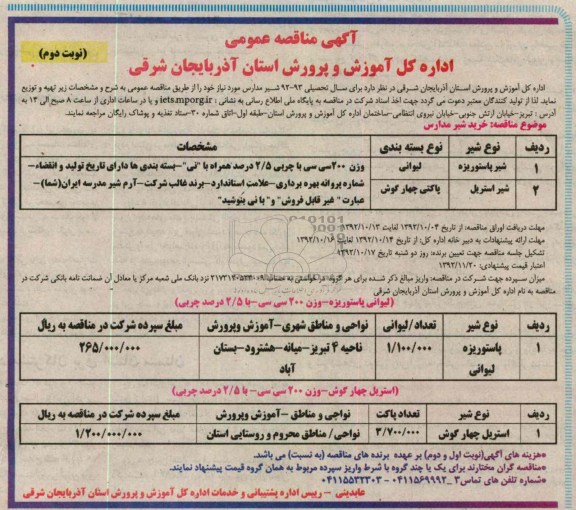 آگهی مناقصه عمومی
(نوبت دوم)
اداره کل آموزش و پرورش استان آذربایجان شرقی
اداره کل آموزش و پرورش استان آذربایجان شرقی در نظر دارد برای سال تحصیلی ۹۳-۹۲ شیر مدارس مورد نیاز خود را از طریق مناقصه عمومی به شرح و مشخصات زیر تهیه و توزیع
نماید. لذا از تولید کنندگان معتبر دعوت می گردد جهت اخذ اسناد شرکت در مناقصه به پایگاه ملی اطلاع رسانی به نشانی : iets.mporg.ir و یا در ساعات اداری از ساعت ۸ صبح الی ۱۴ به
آدرس : تبریز-خیابان ارتش جنوبی-خیابان نیروی انتظامی-ساختمان اداره کل آموزش و پرورش استان-طبقه اول-اتاق شماره ۳۰-ستاد تغذیه و پوشاک رایگان مراجعه نمایند.
موضوع مناقصه: خرید شیر مدارس
ردیف نوع شیر نوع بسته بندی مشخصات
۱ شیر پاستوریزه لیوانی وزن ۲۰۰ سی سی با چربی ۲/۵ درصد همراه با "نی"-بسته بندی ها دارای تاریخ تولید و انقضاء-
شماره پروانه بهره برداری-علامت استاندارد-برند غالب شرکت-آرم شیر مدرسه ایران(شما)-
۲ شیر استریل پاکتی چهار گوش عبارت" غیر قابل فروش" و" با نی بنوشید"
مهلت دریافت اوراق مناقصه: از تاریخ ۱۳۹۲/۱۰/۰۴ لغایت ۱۳۹۲/۱۰/۱۳
مهلت ارائه پیشنهادات به دبیر خانه اداره کل: از تاریخ ۱۳۹۲/۱۰/۱۴ لغایت ۱۳۹۲/۱۰/۱۶
تشکیل جلسه مناقصه جهت تعیین برنده: روز دو شنبه تاریخ ۱۳۹۲/۱۰/۱۷
اعتبار قیمت پیشنهادی: ۱۳۹۲/۱۱/۲۰
میزان سپرده جهت شرکت در مناقصه: واریز مبالغ ذکر شده برای هر گروه نزد بانک ملی شعبه مرکز یا معادل آن ضمانت نامه بانکی شرکت در
مناقصه به نام اداره کل آموزش و پرورش استان آذربایجان شرقی
(لیوانی پاستوریزه-وزن ۲۰۰ سی سی-با ۲/۵ درصد چربی)
ردیف نوع شیر تعداد/لیوانی نواحی و مناطق شهری-آموزش وپرورش مبلغ سپرده شرکت در مناقصه به ریال
۱ پاستوریزه ۱/۱۰۰/۰۰۰ ناحیه ۴ تبریز-میانه-هشترود-بستان ۲۶۵/۰۰۰/۰۰۰
لیوانی آباد
(استریل چهار گوش-وزن ۲۰۰ سی سی- با ۲/۵ درصد چربی)
ردیف نوع شیر تعداد پاکت نواحی و مناطق -آموزش وپرورش مبلغ سپرده شرکت در مناقصه به ریال
۱ استریل چهار گوش ۳/۷۰۰/۰۰۰ نواحی/ مناطق محروم و روستایی استان ۱/۲۰۰/۰۰۰/۰۰۰
*هزینه های آگهی(نوبت اول و دوم) بر عهده برنده های مناقصه (به نسبت) می باشد.
*مناقصه گران مختارند برای یک یا چند گروه با شرط واریز سپرده مربوط به همان گروه قیمت پیشنهاد نمایند.
*شماره تلفن های تماس ۳_۰۴۱۱۵۶۹۹۹۲ - ۰۴۱۱۵۵۳۲۳۰۳
عابدینی - رییس اداره پشتیبانی و خدمات اداره کل آموزش و پرورش استان آذربایجان شرقی